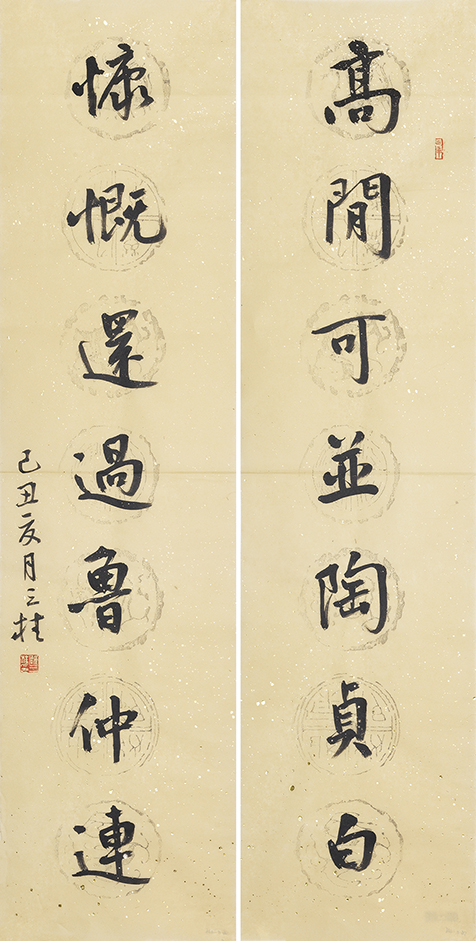 高閒可並陶貞白
慷慨還過魯仲連
己丑夏月三桂